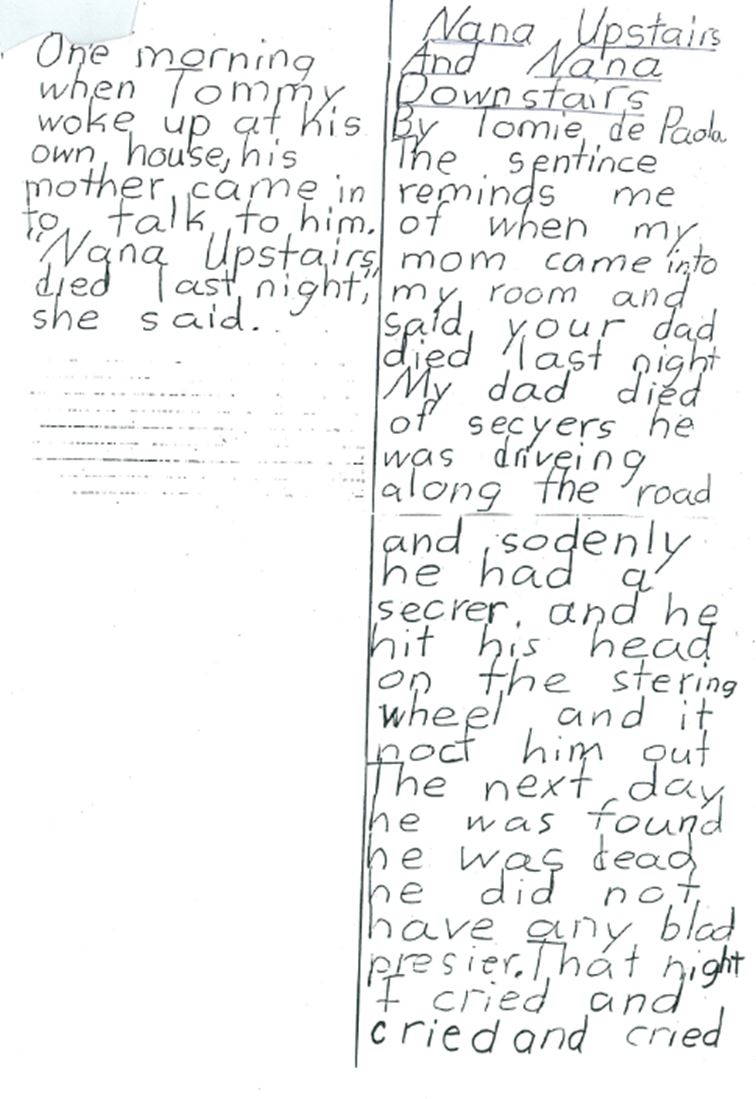 One morning
when Tommy
woke up at his
own house, his
mother came in
to talk to him.
"Nana Upstairs
died last night,"
she said.
Nana Upstairs
And Nana
Downstairs
By Tomie de Paola
The sentince
reminds me
of when my
mom came into
my room and
said your dad
died last night
My dad died
of secyers he
was driveing
along the road
and sodenly
he had a
secrer. and he
hit his head
on the stering
wheel and it
noct him out
The next day
he was found
he was dead
he did not
have any blad
presier. That night
I cried and
cried and cried